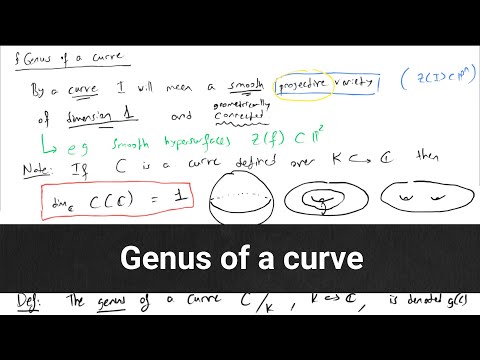 § Genus of a curve
By a curve I will mean a smooth projective variety (Z(I) ⊂ ℙⁿ)
of dimension 1 and geometrically connected
↳ eg smooth hypersurfaces Z(f) ⊂ ℙ²
Note: If C is a curve defined over K ↪ ℂ then
dim_ℂ C(ℂ) = 1
Genus of a curve
Def: The genus of a curve C/K, K ↪ ℂ, is denoted g(C)